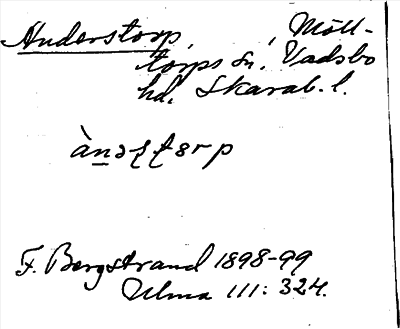 Anderstorp, Möll-
torps sn. Vadsbo
hd. Skarab. l.
F. Bergstrand 1898-99
Ulma 111: 324.